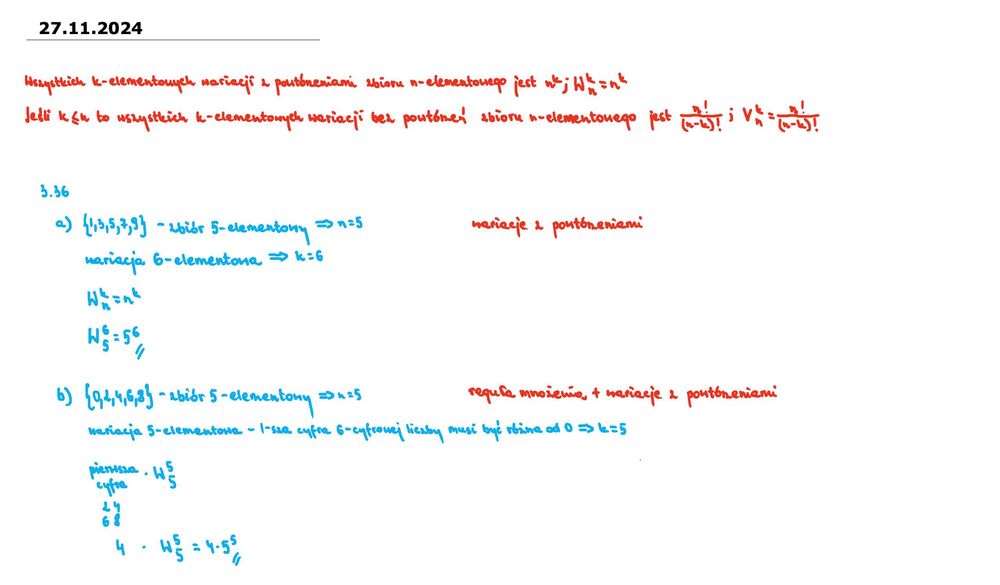 27.11.2024
Wszystkich k-elementowych wariacji z powtórzeniami zbioru n-elementowego jest n^k; W_n^k = n^k
Jeśli k ≤ n to wszystkich k-elementowych wariacji bez powtórzeń zbioru n-elementowego jest n!/(n-k)! ; V_n^k = n!/(n-k)!
3.36
a) {1,3,5,7,9} - zbiór 5-elementowy ⇒ n=5
wariacje z powtórzeniami
wariacja 6-elementowa ⇒ k=6
W_n^k = n^k
W_5^6 = 5^6 //
b) {0,2,4,6,8} - zbiór 5-elementowy ⇒ n=5
reguła mnożenia + wariacje z powtórzeniami
wariacja 5-elementowa - 1-sza cyfra 6-cyfrowej liczby musi być różna od 0 ⇒ k=5
pierwsza · W_5^5
cyfra
2 4
6 8
4 · W_5^5 = 4·5^5 //